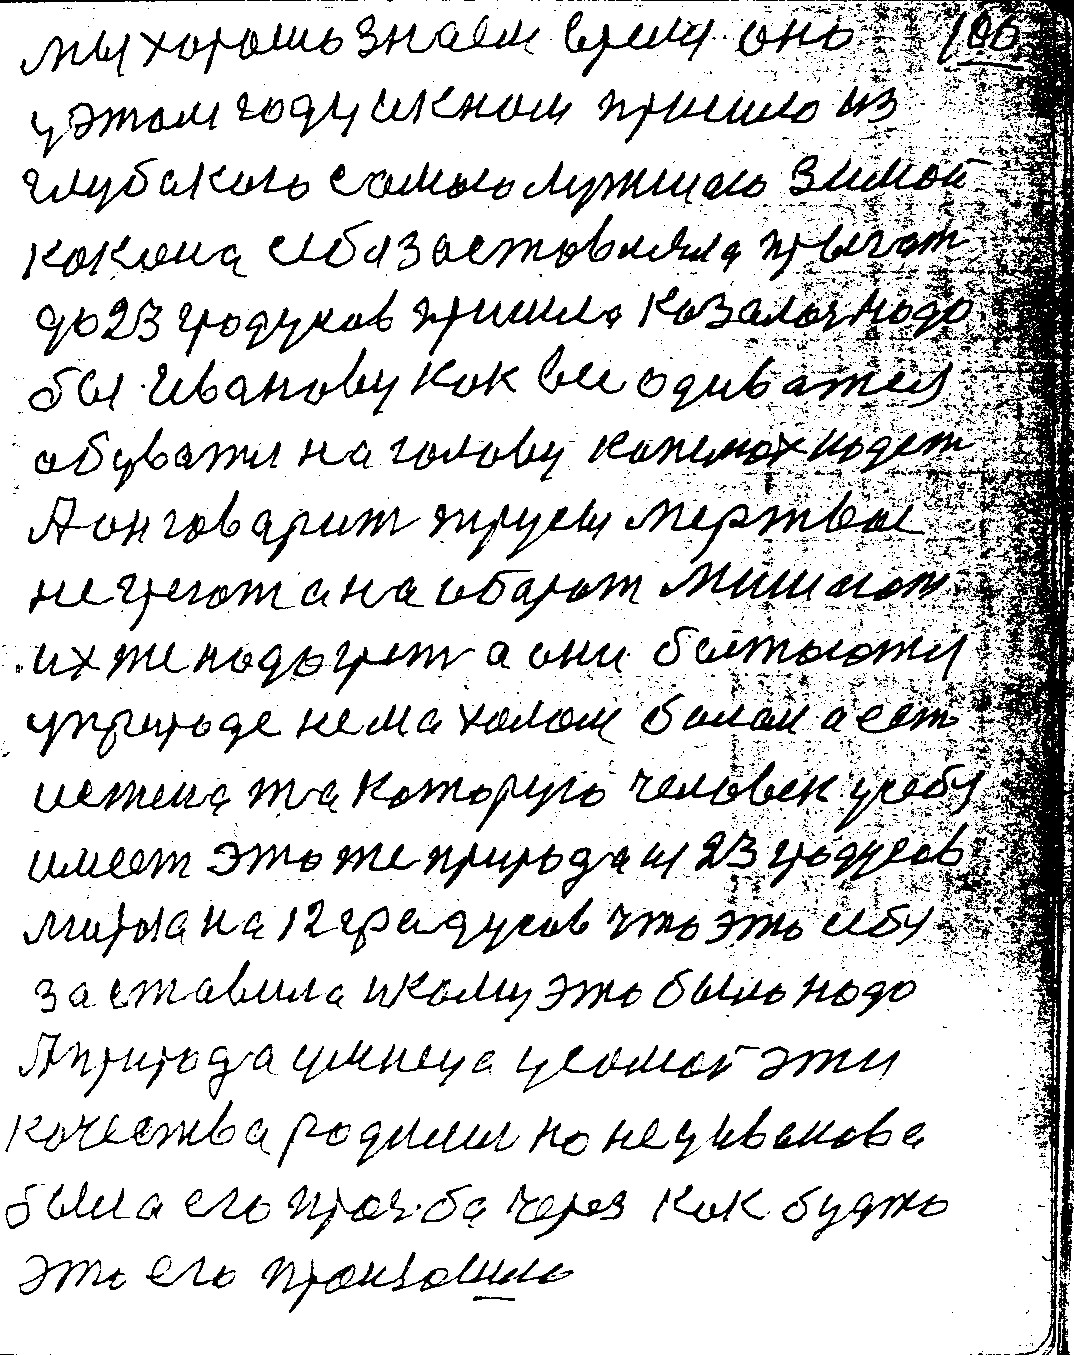 мы хорошо знаем время оно 106
у этом году икнам пришло из
глубокого самого лужшаго зимой
какона себя заставляла прыгат
до 23 градусов пришло Казалоч надо
бы Иванову как все одиватся
обуватся на голову надет
А он говарит трусы мертвые
не греют а на обарот мишают
их же надо грет а они баятьются
уприроде нема халом балам а ест
истена та которую человек усебя
имеет это же природа и 23 градусов
мароза на 12 градусов что это себя
заставила и кому это было надо
А природа умнеца усамой эти
качества радилис но не уиванова
была его прозба через как будто
это его произошло